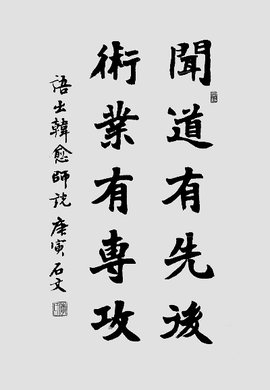 聞道有先後
術業有專攻
語出韓愈師説 庚寅 石文